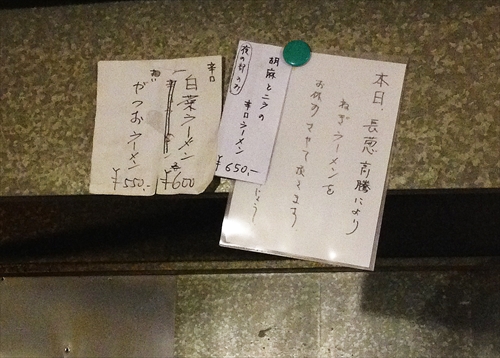 本日、長葱高騰により
ねぎラーメンを
お休みさせて頂きます。
夜の部のみ
胡麻とニラの
辛口ラーメン
¥650,-
辛口
白菜ラーメン
¥600
かつおラーメン
¥550,-